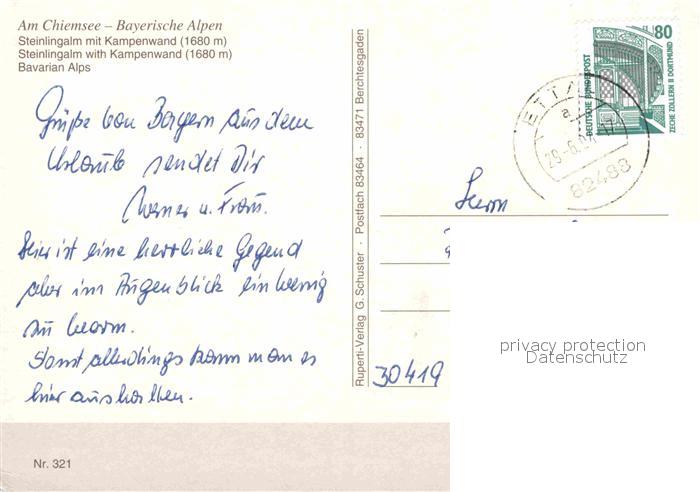 Am Chiemsee – Bayerische Alpen
Steinlingalm mit Kampenwand (1680 m)
Steinlingalm with Kampenwand (1680 m)
Bavarian Alps
Grüße von Bayern aus dem
Urlaub sendet Dir
Werner u. Frau.
Hier ist eine herrliche Gegend
aber im Augenblick ein wenig
zu warm.
Sonst allerdings kann man es
hier aushalten.
Nr. 321
Ruperti-Verlag G. Schuster · Postfach 83464 · 83471 Berchtesgaden
80
DEUTSCHE BUNDESPOST
ZECHE ZOLLERN II DORTMUND
ETTAL
a
82488
Herrn
30419
privacy protection
Datenschutz